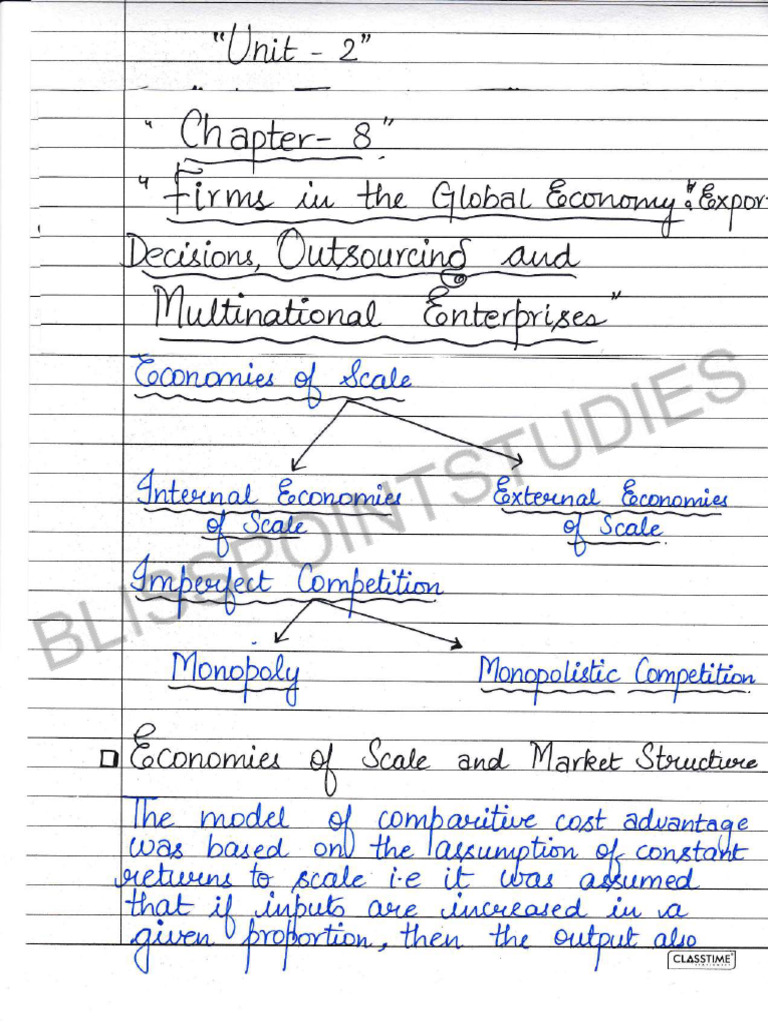 "Unit - 2"
"Chapter - 8"
"Firms in the Global Economy: Expor
Decisions, Outsourcing and
Multinational Enterprises"
Economies of Scale
Internal Economies of Scale
External Economies of Scale
Imperfect Competition
Monopoly
Monopolistic Competition
Economies of Scale and Market Structure
The model of comparitive cost advantage
was based on the assumption of constant
returns to scale i.e it was assumed
that if inputs are increased in a
given proportion, then the output also
CLASSTIME
BLISSPOINTSTUDIES